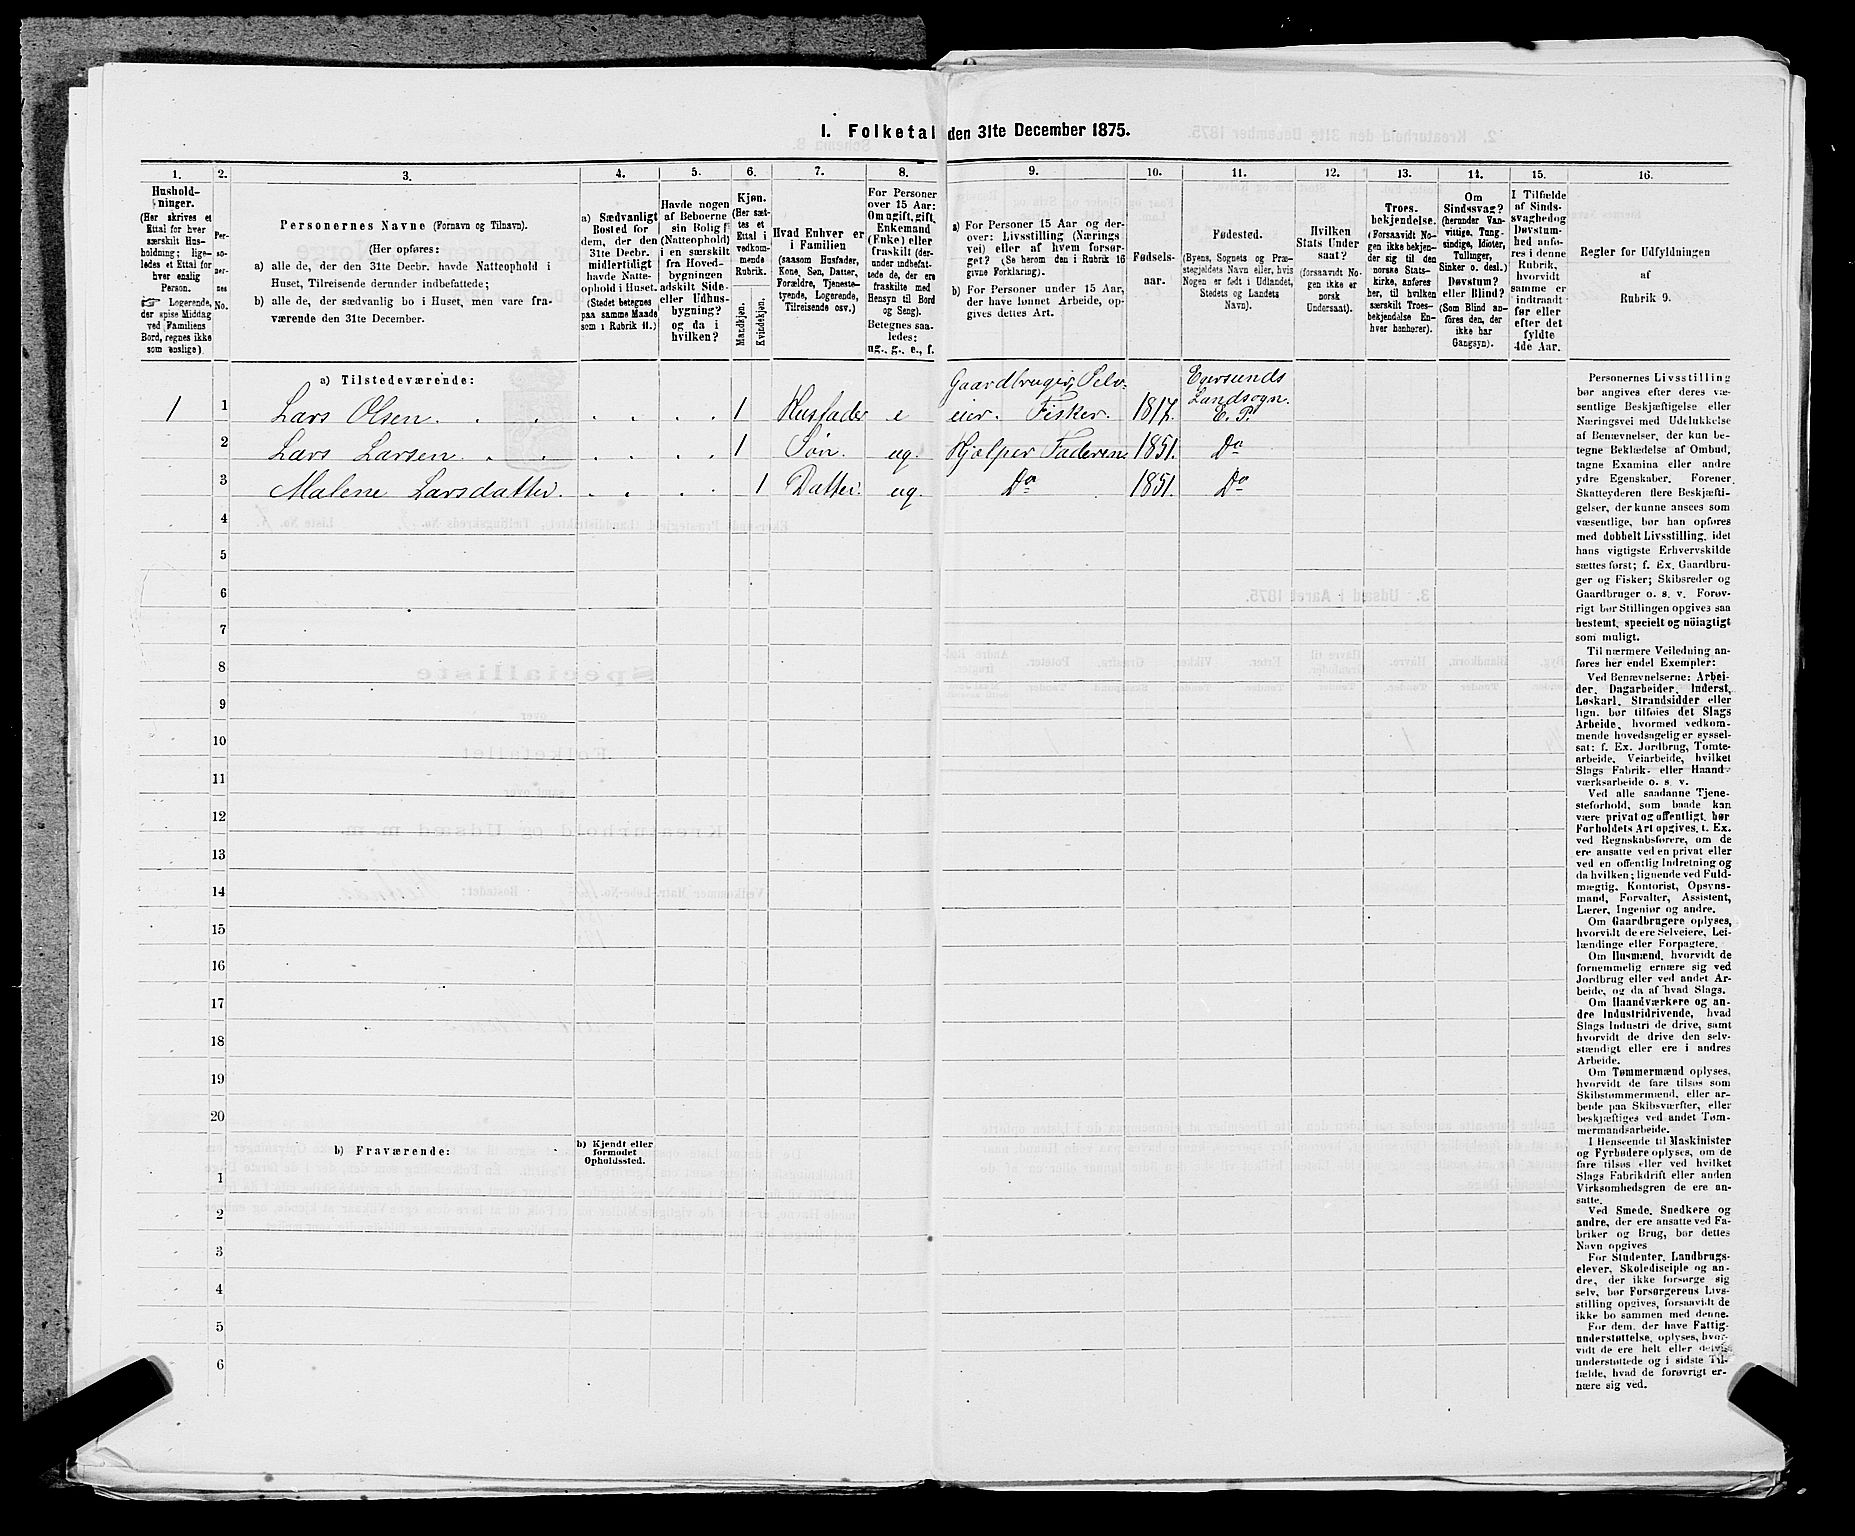 I. Folketal den 31te December 1875.
1. 2. 3. 4. 5. 6. 7. 8. 9. 10. 11. 12. 13. 14. 15. 16.
Hushold-
ninger.
(Her skrives et
Ettal for hver
særskilt Hus-
holdning; lige-
ledes et Ettal for
hver enslig
Person.
☞ Logerende,
der spise Middag
ved Familiens
Bord, regnes ikke
som enslige).
Per-
so-
ner-
nes
No.
Personernes Navne (Fornavn og Tilnavn).
(Her opføres:
a) alle de, der den 31te Decbr. havde Natteophold i
Huset, Tilreisende derunder indbefattede;
b) alle de, der sædvanlig bo i Huset, men vare fra-
værende den 31te December.
a) Sædvanligt
Bosted for
dem, der den
31te Decbr.
midlertidigt
havde Natte-
ophold i Huset.
(Stedet betegnes
paa samme Maade
som i Rubrik II.)
Havde nogen
af Beboerne
sin Bolig
(Natteophold)
i en særskilt
fra Hoved-
bygningen
adskilt Side-
eller Udhus-
bygning?
og da i
hvilken?
Kjøn.
(Her sæt-
tes et
Ettal i
vedkom-
mende
Rubrik.
Mandkjøn.
Kvindekjøn.
Hvad Enhver er
i Familien
(saasom Husfader,
Kone, Søn, Datter,
Forældre, Tjeneste-
tyende, Logerende,
Tilreisende osv.)
For Personer
over 15 Aar:
Om ugift, gift,
Enkemand
(Enke) eller
fraskilt (der-
under indbefat-
tede de, der ere
fraskilte med
Hensyn til Bord
og Seng).
Betegnes saa-
ledes:
ug., g., e., f.
a) For Personer 15 Aar og der-
over: Livsstilling (Nærings-
vei) eller af hvem forsør-
get? (Se herom den i Rubrik 16
givne Forklaring).
b) For Personer under 15 Aar,
der have lønnet Arbeide, op-
gives dettes Art.
Fødsels-
aar.
Fødested.
(Byens, Sognets og Præ-
stegjeldets Navn eller, hvis
Nogen er født i Udlandet,
Stedets og Landets
Navn).
Hvilken
Stats Under
saat?
(forsaavidt No-
gen ikke er
norsk
Undersaat).
Troes-
bekjendelse.
(Forsaavidt No-
gen ikke bekjen-
der sig til den
norske Stats-
kirke, anføres
her, til hvilken
særskilt Troes-
bekjendelse En-
hver henhører).
Om
Sindssvag?
(herunder Van-
vittige, Tung-
sindige, Idioter,
Tullinger,
Sinker o. desl.)
Døvstum?
eller Blind?
(Som Blind an-
føres den, der
ikke har
Gangsyn).
I Tilfælde
af Sinds-
svaghed og
Døvstum-
hed anfø-
res i denne
Rubrik,
hvorvidt
samme er
indtraadt
før eller
efter det
fyldte
4de Aar.
Regler for Udfyldningen
af
Rubrik 9.
a) Tilstedeværende:
1 1 Lars Olsen. 1 Husfader e Gaardbruger, Selv-
eier. Fisker. 1817. Egersunds
Landsogn.
E. P.
2 Lars Larsen 1 Søn. ug. Hjælper Faderen 1851. Do
3 Malene Larsdatter. 1 Datter. ug. Do 1851. Do
4
5
6
7
8
9
10
11
12
13
14
15
16
17
18
19
20
b) Fraværende:
b) Kjendt eller
formodet
Opholdssted.
1
2
3
4
5
6
Personernes Livsstilling
bør angives efter deres væ-
sentlige Beskjæftigelse eller
Næringsvei med Udelukkelse
af Benævnelser, der kun be-
tegne Beklædelse af Ombud,
tagne Examina eller andre
ydre Egenskaber. Forener
Skatteyderen flere Beskjæfti-
gelser, der kunne ansees som
væsentlige, bør han opføres
med dobbelt Livsstilling, idet
hans vigtigste Erhvervskilde
sættes først; f. Ex. Gaardbru-
ger og Fisker; Skibsreder og
Gaardbruger o. s. v. Forøv-
rigt bør Stillingen opgives saa
bestemt, specielt og nöiagtigt
som muligt.
Til nærmere Veiledning an-
føres her endel Exempler:
Ved Benævnelserne: Arbei-
der, Dagarbeider, Inderst,
Løskarl, Strandsidder eller
lign. bør tilføies det Slags
Arbeide, hvormed vedkom-
mende hovedsagelig er syssel-
sat: f. Ex. Jordbrug, Tomte-
arbeide, Veiarbeide, hvilket
Slags Fabrik- eller Haand-
værksarbeide o. s. v.
Ved alle saadanne Tjene-
steforhold, som baade kan
være privat og offentligt, bør
Forholdets Art opgives, t. Ex.
ved Regnskabsførere, om de
ere ansatte ved en privat eller
ved en offentlig Indretning og
da hvilken; lignende ved Fuld-
mægtig, Kontorist, Opsyns-
mand, Forvalter, Assistent,
Lærer, Ingeniør og andre.
Om Gaardbrugere oplyses,
hvorvidt de ere Selveiere, Lei-
lændinge eller Forpagtere.
Om Husmænd, hvorvidt de
fornemmelig ernære sig ved
Jordbrug eller ved andet Ar-
beide, og da af hvad Slags.
Om Haandværkere og an-
dre Industridrivende, hvad
Slags Industri de drive, samt
hvorvidt de drive den selv-
stændigt eller ere i andres
Arbeide.
Om Tømmermænd oplyses,
hvorvidt de fare tilsøs som
Skibstømmermænd, eller ar-
beide paa Skibsværfter, eller
beskjæftiges ved andet Tøm-
mermandsarbeide.
I Henseende til Maskinister
og Fyrbødere oplyses, om de
fare tilsøs eller ved hvilket
Slags Fabrikdrift eller anden
Virksomhedsgren de ere an-
satte.
Ved Smede, Snedkere og
andre, der ere ansatte ved Fa-
briker og Brug, bør dettes
Navn opgives
For Studenter, Landbrugs-
elever, Skoledisciple og an-
dre, der ikke forsørge sig
selv, bør Forsørgerens Livs-
stilling opgives, forsaavidt de
ikke bo sammen med denne.
For dem, der have Fattig-
understøttelse, oplyses, hvor-
vidt de ere helt eller delvis
understøttede og i sidste Til-
fælde, hvad de forøvrigt er-
nære sig ved.